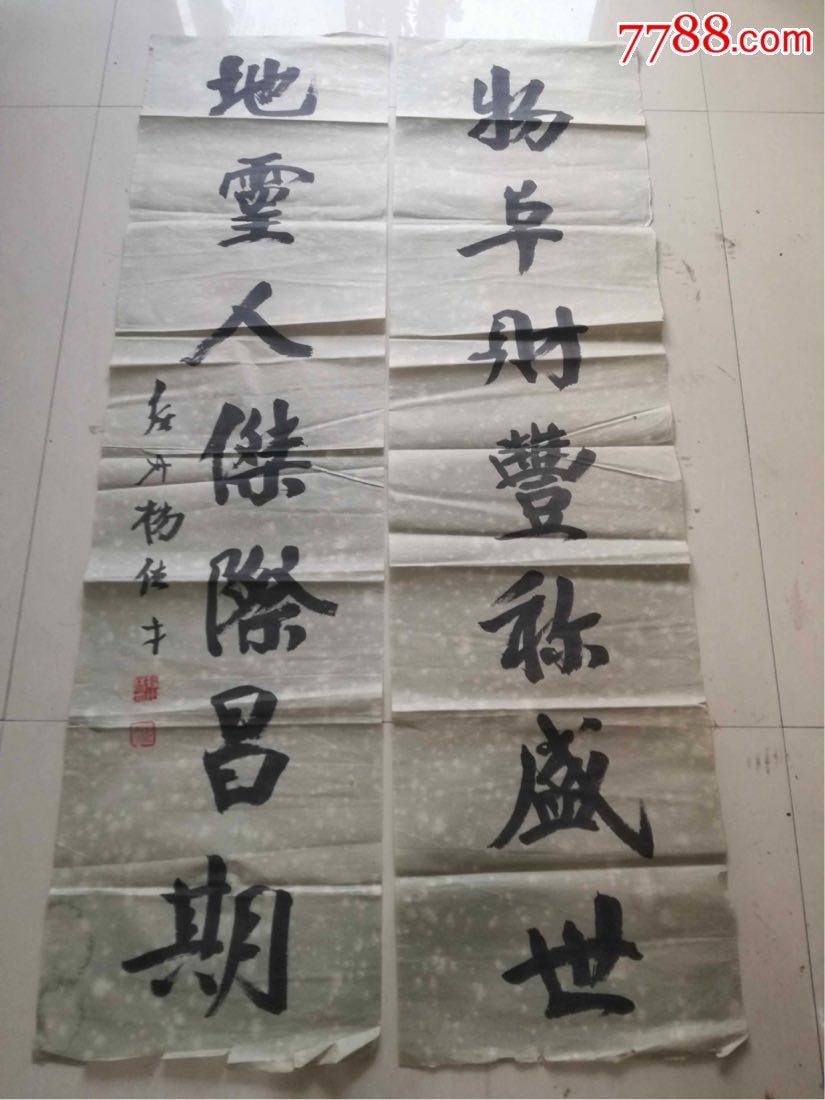 7788.com
物阜財豐称盛世
地靈人傑際昌期